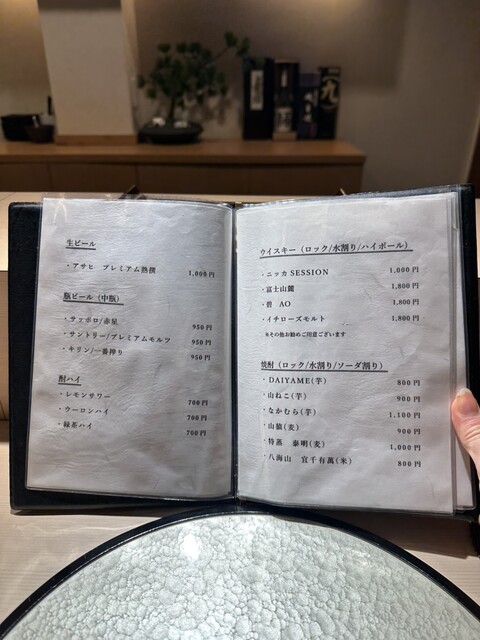 生ビール
・アサヒ プレミアム熟撰 1,000円
瓶ビール（中瓶）
・サッポロ/赤星 950円
・サントリー/プレミアムモルツ 950円
・キリン/一番搾り 950円
酎ハイ
・レモンサワー 700円
・ウーロンハイ 700円
・緑茶ハイ 700円
ウイスキー（ロック/水割り/ハイボール）
・ニッカ SESSION 1,000円
・富士山麓 1,800円
・碧 AO 1,800円
・イチローズモルト 1,800円
※その他お勧めご用意ございます
焼酎（ロック/水割り/ソーダ割り）
・DAIYAME(芋) 800円
・山ねこ(芋) 900円
・なかむら(芋) 1,100円
・山猿(麦) 900円
・特蒸 泰明(麦) 1,000円
・八海山 宜有千萬(米) 800円